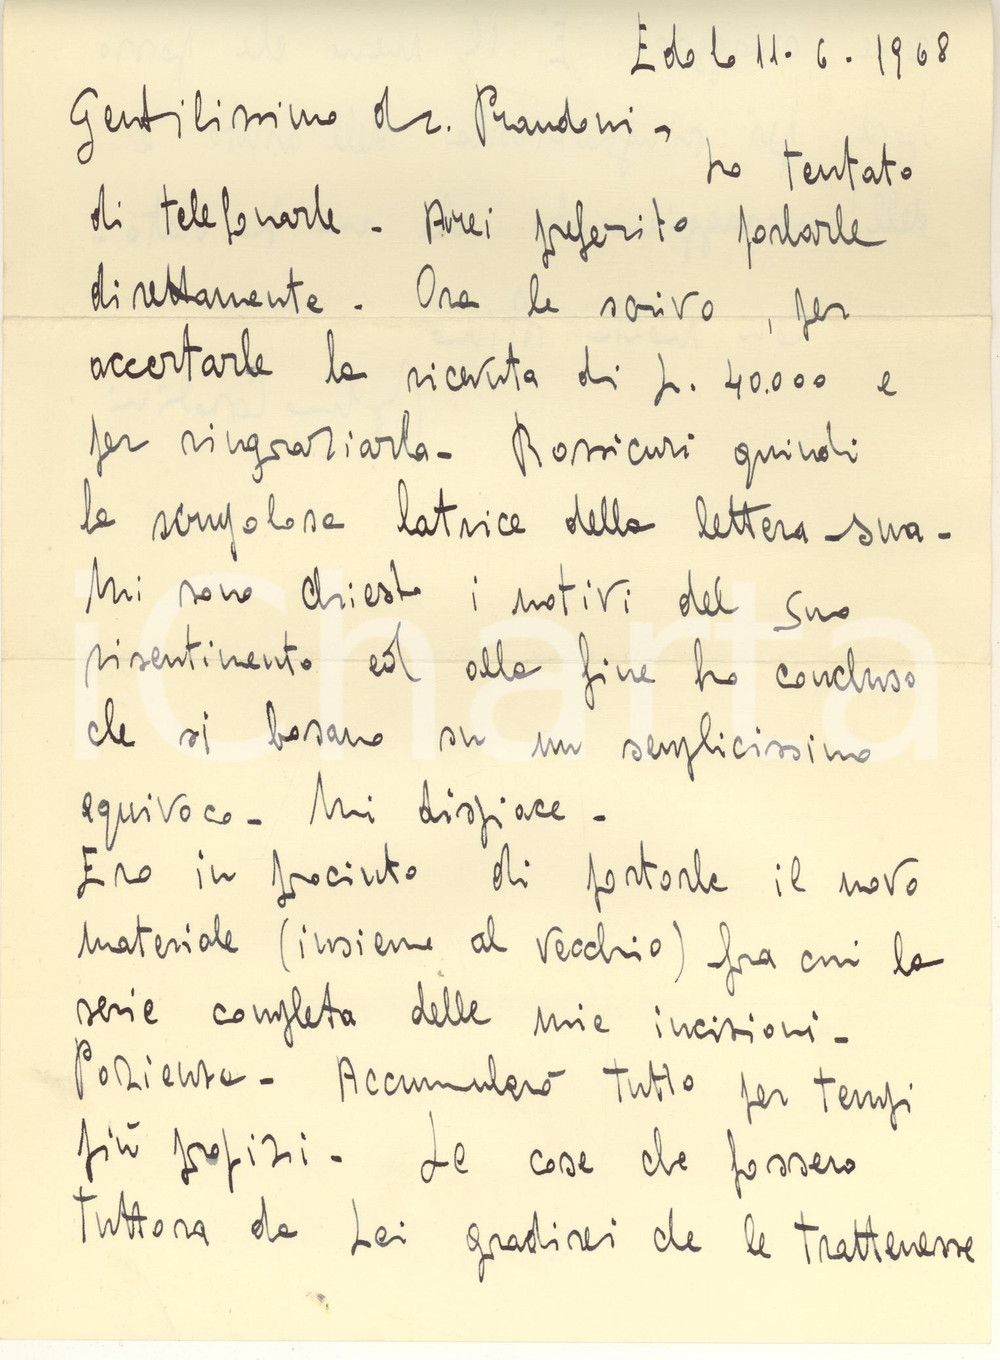 Edolo 11. 6. 1968
Gentilissimo dr. Prandoni,
ho tentato
di telefonarle - Avrei preferito parlarle
direttamente - Ora le scrivo, per
accertarle la ricevuta di £. 40.000 e
per ringraziarla - Rassicuri quindi
la scrupolosa latrice della lettera sua -
Mi sono chiesto i motivi del Suo
risentimento ed alla fine ho concluso
che si basano su un semplicissimo
equivoco - Mi dispiace -
Ero in procinto di portarle il novo
materiale (insieme al vecchio) fra cui la
serie completa delle mie incisioni -
Paziente - Accumulerò tutto per tempi
più propizi - Le cose che fossero
tuttora da Lei gradirei che le trattenesse
iCharta